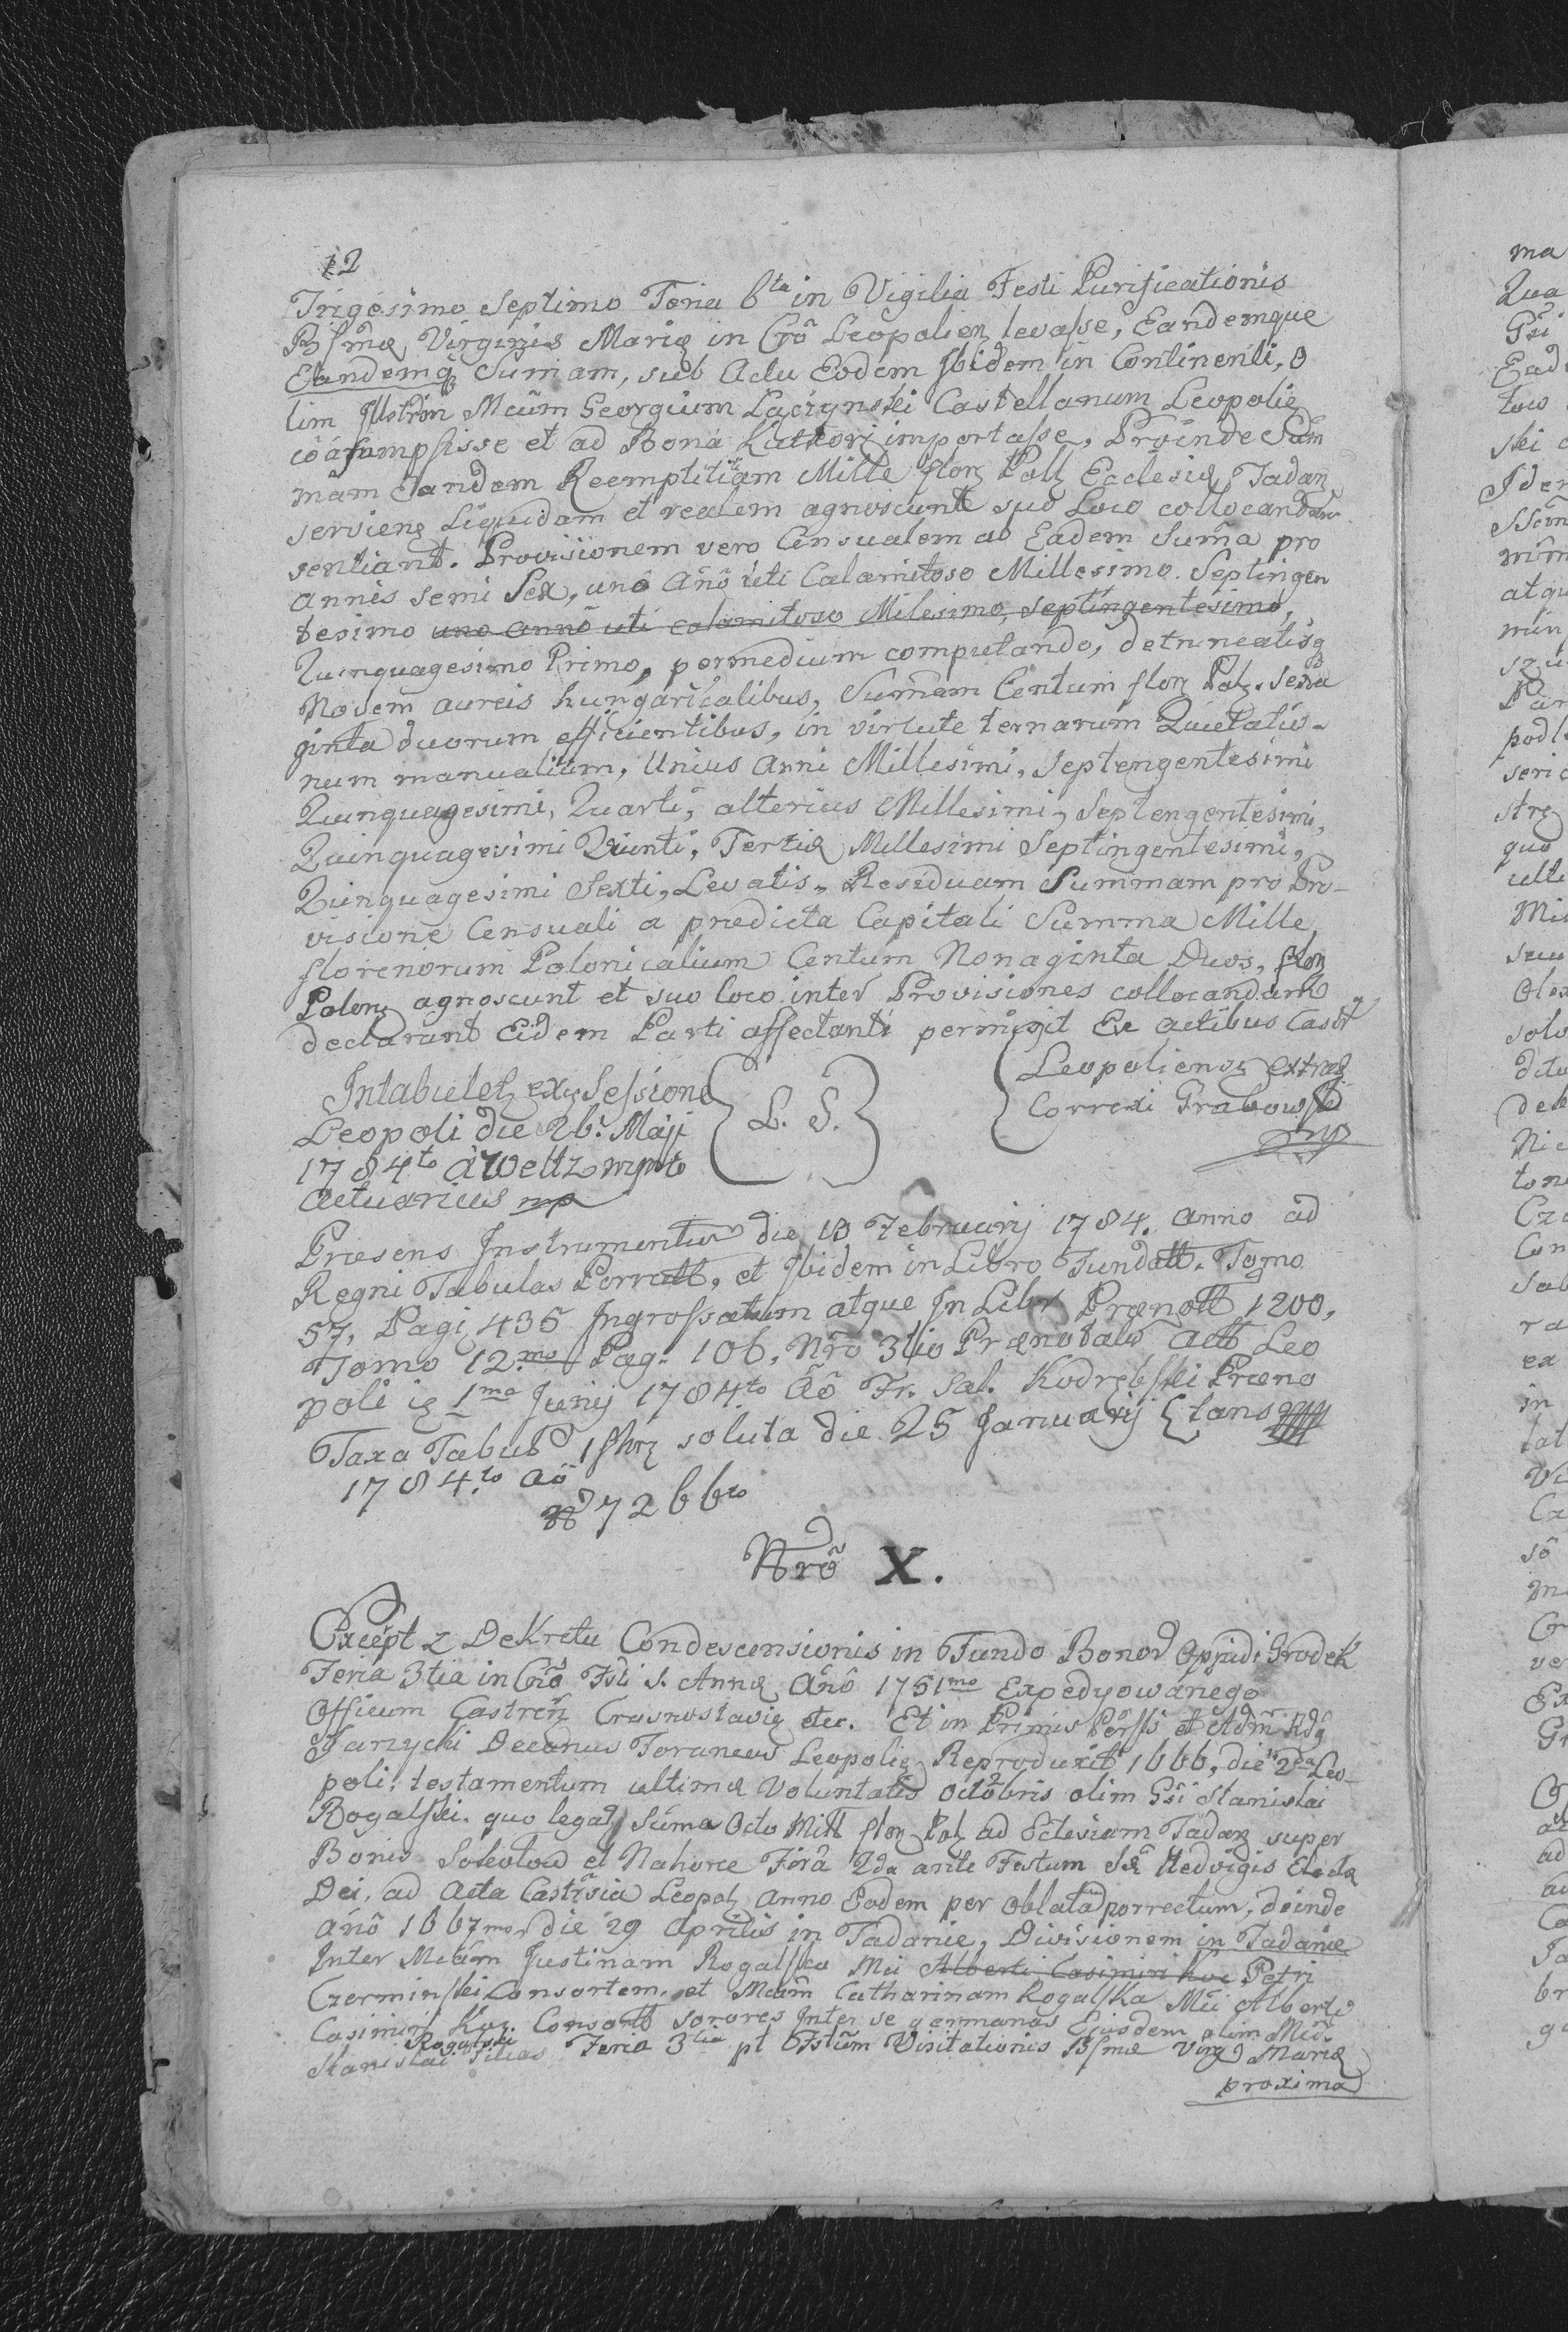 12
Trigesimo Septimo Feria 6ta in Vigilia Festi Purificationis
Bssmæ Virginis Mariæ in Cro Leopolien levasse, Eandemque
Eandemq Sumam, sub Actu Eodem Ibidem in Continenti, o
lim Illstrm Mcum Georgium Łączynski Castellanum Leopolie
coassumpsisse et ad Bona importasse, Proinde Sum
mam Eandem Reemptitiam Mille flor Poll Ecclesiæ Tadan
serviens Liquidam et realem agnoscunt suo Loco collocandam
sentiant. Provisionem vero Censualem ab Eadem Suma pro
annis semi Sex, uno Año uti Calamitoso Millesimo Septingen
tesimo uno anno uti calamitoso Milesimo, septingentesimo,
Quinquagesimo Primo, permedium computando, detruncatisq
Novem aureis hungaricalibus, Sumam Centum flor Pol. Sexa
ginta duorum efficientibus, in virtute ternarum Quietatio-
num manualium, Unius Anni Millesimi, Septengentesimi
Quinquagesimi, Quarti, alterius Millesimi, Septengentesimi,
Quinquagesimi Quinti, Tertiæ Millesimi Septingentesimi,
Quinquagesimi Sexti, Levatis, Residuam Summam pro Pro-
visione Censuali a prædicta Capitali Summa Mille,
florenorum Polonicalium Centum Nonaginta Duos, flor
Polon agnoscunt et suo loco inter Provisiones collocandam
declarant Eidem Parti affectanti permisit Ex actibus Castr
Intabulet ex Sessione
Leopoli die 26. Maji
1784to
Actuarius mp
L. S.
Leopoliens extrad
Correxi Grabowski
mp
Præsens Instrumentum die 10 Februarij 1784. anno ad
Regni Tabulas Porrectt, et Ibidem in Libro Fundatt. Tomo
57, Pagi 435 Ingrossatum atque In Libr Prænott 1200,
Tomo 12mo Pag. 106, Nro 3tio Prænotat Actt Leo
poli 1ma Junij 1784to Ao Fr. Sal. Kodrębski Præno
Taxa Tabul soluta die 25 Januarij
1784to Ao
Nro X.
Except z Dekretu Condescensionis in Fundo Bonor Oppidi Grodek
Feria 3tia in Cro Fsti S. Annæ Año 1751mo Expedyowanego
Officium Castren Crasnostaviæ etc. Et in Primis et
Decanus Foraneus Leopolie Reproduxit 1666, die 2da Leo-
poli, testamentum ultimæ Voluntatis octobris olim Gsi Stanislai
Rogalski. quo legat Suma Octo Mill flor Pol ad Eclesiam Tadan super
Bonis Sokołow et Nahorce Fera 2da ante Festum Hedvigis Electæ
Dei, ad Acta Castrsia Leopol Anno Eodem per Oblatam porrectum, deinde
Año 1667mo, die 29 Aprilis in Tadanie, Divisionem in Tadanie
Inter Mcam Justinam Rogalska Mci Alberti Casimiri Petri
Czerminski Consortem, et Mcam Catharinam Rogalska Mci Alberti
Casimiri Consortt sorores Inter se germanas Ejusdem olim Mci
Rogalski
Stanislai Filias Feria 3tia pt Fstum Visitationis Bssmæ Virg Mariæ
proxima